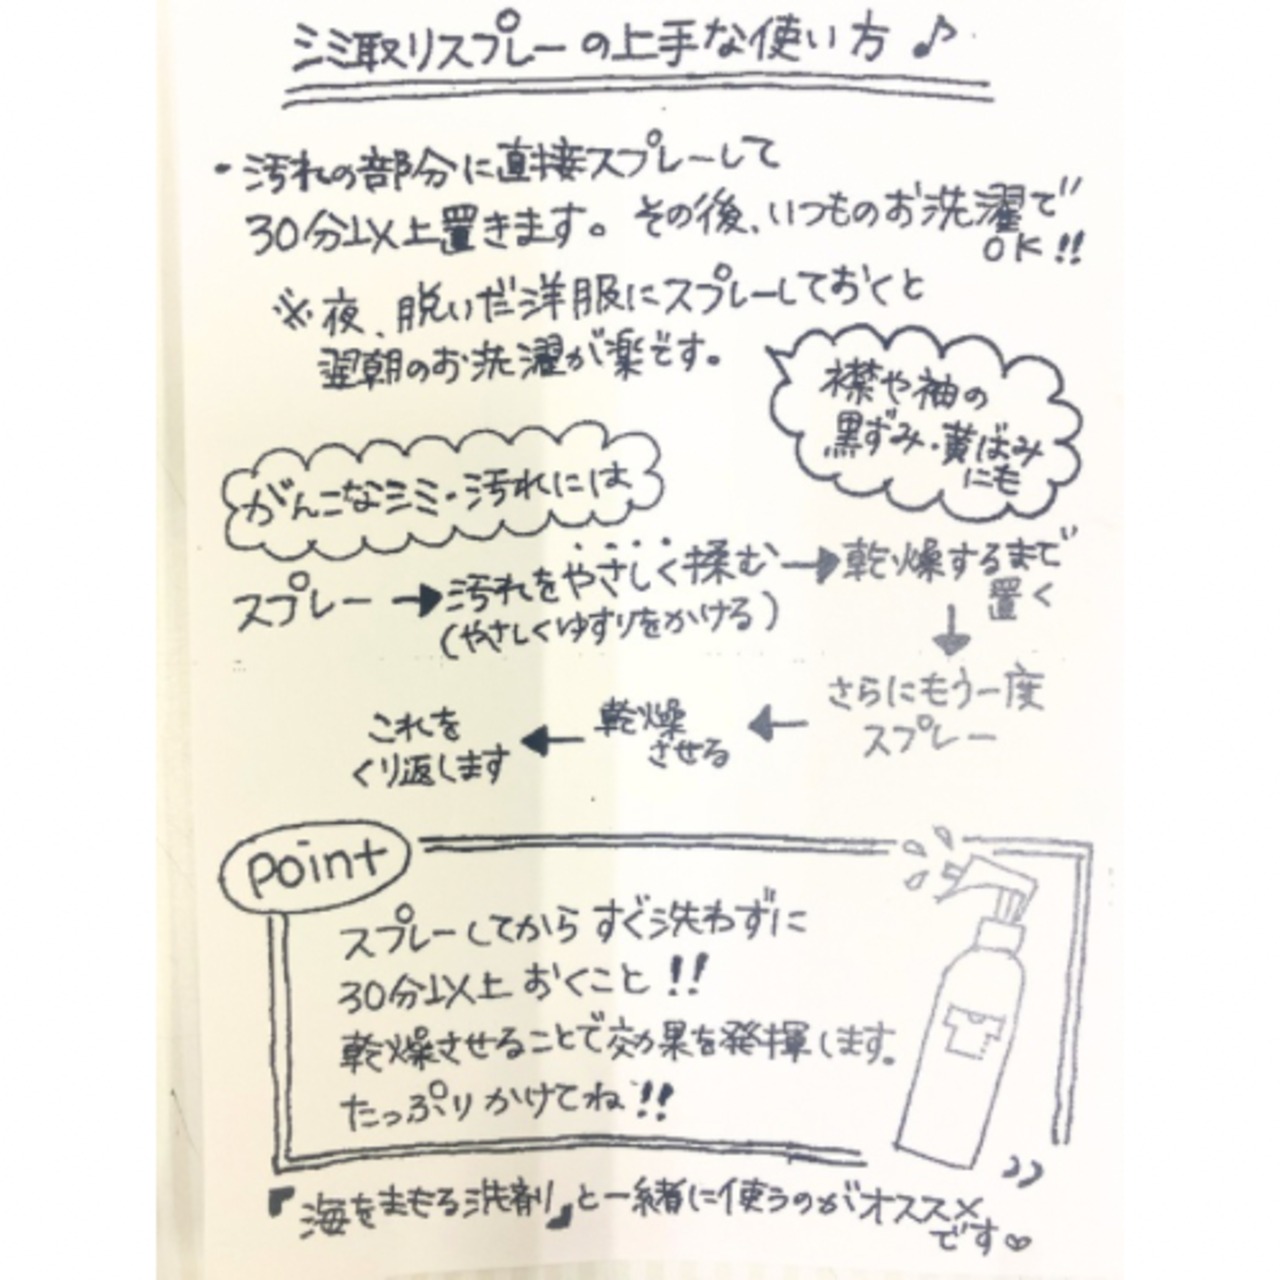 シミ取りスプレーの上手な使い方♪
・汚れの部分に直接スプレーして
30分以上置きます。その後、いつものお洗濯で
OK!!
※夜、脱いだ洋服にスプレーしておくと
翌朝のお洗濯が楽です。
襟や袖の
黒ずみ・黄ばみ
にも
がんこなシミ・汚れには
スプレー→汚れをやさしく揉む→乾燥するまで
置く
(やさしくゆすりをかける)
↓
さらにもう一度
スプレー
←乾燥
させる
←これを
くり返します
Point
スプレーしてからすぐ洗わずに
30分以上おくこと!!
乾燥させることで効果を発揮します。
たっぷりかけてね!!
『海をまもる洗剤』と一緒に使うのがオススメ
です♡